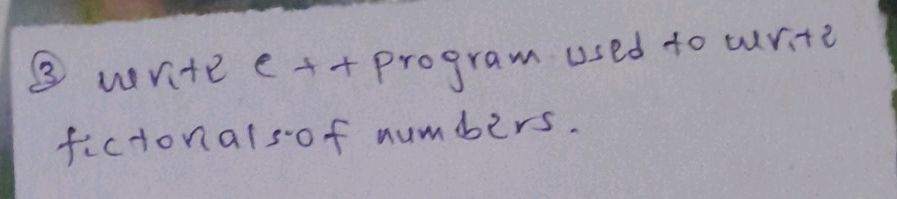 ③ write c++ program used to write
fictorials of numbers.